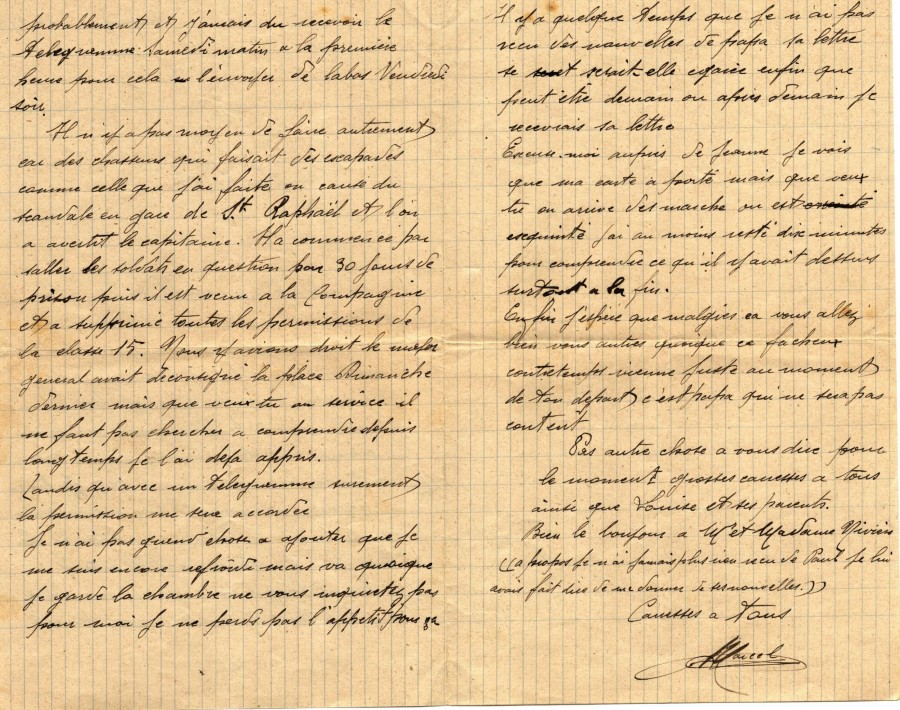 probablement et j'aimais du recevoir le
telegramme Samedi matin a la première
heure pour cela l'envoyer de labas Vendredi
soir.
Il n'y a pas moyen de faire autrement
car des chasseurs qui faisait des escapades
comme celle que j'ai faite on cause du
scandale en gare de St Raphaël et l'on
a avertit le capitaine. Il a commencé par
saller les soldats en question pour 30 jours de
prison puis il est venu a la Compagnie
et a supprimé toutes les permissions de
la classe 15. Nous y avions droit le major
general avait déconsigné la place Dimanche
dernier mais que veux-tu au service il
ne faut pas chercher a comprendre depuis
longtemps je l'ai deja appris.
Tandis qu'avec un telegramme surement
la permission me sera accordée
Je n'ai pas grand chose a ajouter que je
me suis encore refroidé mais va quoique
je garde la chambre ne vous inquietez pas
pour moi je ne perds pas l'appetit pour ça
Il y a quelque temps que je n'ai pas
reçu des nouvelles de papa sa lettre
se serait-elle egarée enfin que
peut être demain ou après demain je
recevrais sa lettre
Excuse-moi auprès de Jeanne je vois
que ma carte a porté mais que veux
tu on arrive des marche on est
esquinté j'ai au moins resté dix minutes
pour comprendre ce qu'il y avait dessus
surtout a la fin.
Enfin j'espère que malgres ca vous allez
bien vous autres quoique ce facheux
contretemps vienne juste au moment
de ton depart c'est papa qui ne sera pas
content
Pas autre chose a vous dire pour
le moment grosses caresses a tous
ainsi que Louise et ses parents.
Bien le bonjour a Mr et Madame Vivien
((a propos je n'ai jamais plus rien reçu de Paul je lui
avais fait dire de me donner de ses nouvelles.))
Caresses a tous
Marcel